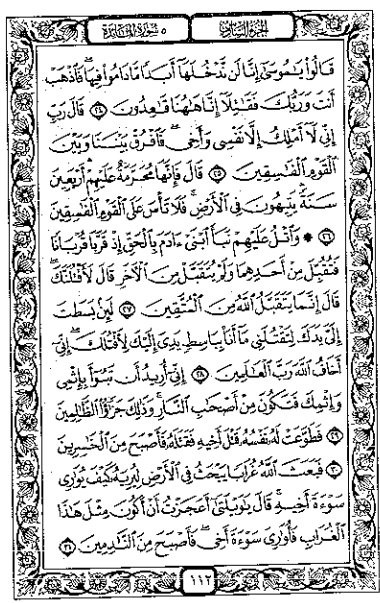 الجزء السادس
٥ سورة المائدة
قَالُوا۟ يَٰمُوسَىٰٓ إِنَّا لَن نَّدْخُلَهَآ أَبَدًا مَّا دَامُوا۟ فِيهَا ۖ فَٱذْهَبْ
أَنتَ وَرَبُّكَ فَقَٰتِلَآ إِنَّا هَٰهُنَا قَٰعِدُونَ ٢٤ قَالَ رَبِّ
إِنِّى لَآ أَمْلِكُ إِلَّا نَفْسِى وَأَخِى ۖ فَٱفْرُقْ بَيْنَنَا وَبَيْنَ
ٱلْقَوْمِ ٱلْفَٰسِقِينَ ٢٥ قَالَ فَإِنَّهَا مُحَرَّمَةٌ عَلَيْهِمْ ۛ أَرْبَعِينَ
سَنَةً ۛ يَتِيهُونَ فِى ٱلْأَرْضِ ۚ فَلَا تَأْسَ عَلَى ٱلْقَوْمِ ٱلْفَٰسِقِينَ
٢٦ ۞ وَٱتْلُ عَلَيْهِمْ نَبَأَ ٱبْنَىْ ءَادَمَ بِٱلْحَقِّ إِذْ قَرَّبَا قُرْبَانًا
فَتُقُبِّلَ مِنْ أَحَدِهِمَا وَلَمْ يُتَقَبَّلْ مِنَ ٱلْءَاخَرِ قَالَ لَأَقْتُلَنَّكَ ۖ
قَالَ إِنَّمَا يَتَقَبَّلُ ٱللَّهُ مِنَ ٱلْمُتَّقِينَ ٢٧ لَئِنۢ بَسَطتَ
إِلَىَّ يَدَكَ لِتَقْتُلَنِى مَآ أَنَا۠ بِبَاسِطٍ يَدِىَ إِلَيْكَ لِأَقْتُلَكَ ۖ إِنِّىٓ
أَخَافُ ٱللَّهَ رَبَّ ٱلْعَٰلَمِينَ ٢٨ إِنِّىٓ أُرِيدُ أَن تَبُوٓأَ بِإِثْمِى
وَإِثْمِكَ فَتَكُونَ مِنْ أَصْحَٰبِ ٱلنَّارِ ۚ وَذَٰلِكَ جَزَٰٓؤُا۟ ٱلظَّٰلِمِينَ
٢٩ فَطَوَّعَتْ لَهُۥ نَفْسُهُۥ قَتْلَ أَخِيهِ فَقَتَلَهُۥ فَأَصْبَحَ مِنَ ٱلْخَٰسِرِينَ
٣٠ فَبَعَثَ ٱللَّهُ غُرَابًا يَبْحَثُ فِى ٱلْأَرْضِ لِيُرِيَهُۥ كَيْفَ يُوَٰرِى
سَوْءَةَ أَخِيهِ ۚ قَالَ يَٰوَيْلَتَىٰٓ أَعَجَزْتُ أَنْ أَكُونَ مِثْلَ هَٰذَا
ٱلْغُرَابِ فَأُوَٰرِىَ سَوْءَةَ أَخِى ۖ فَأَصْبَحَ مِنَ ٱلنَّٰدِمِينَ ٣١
١١٢